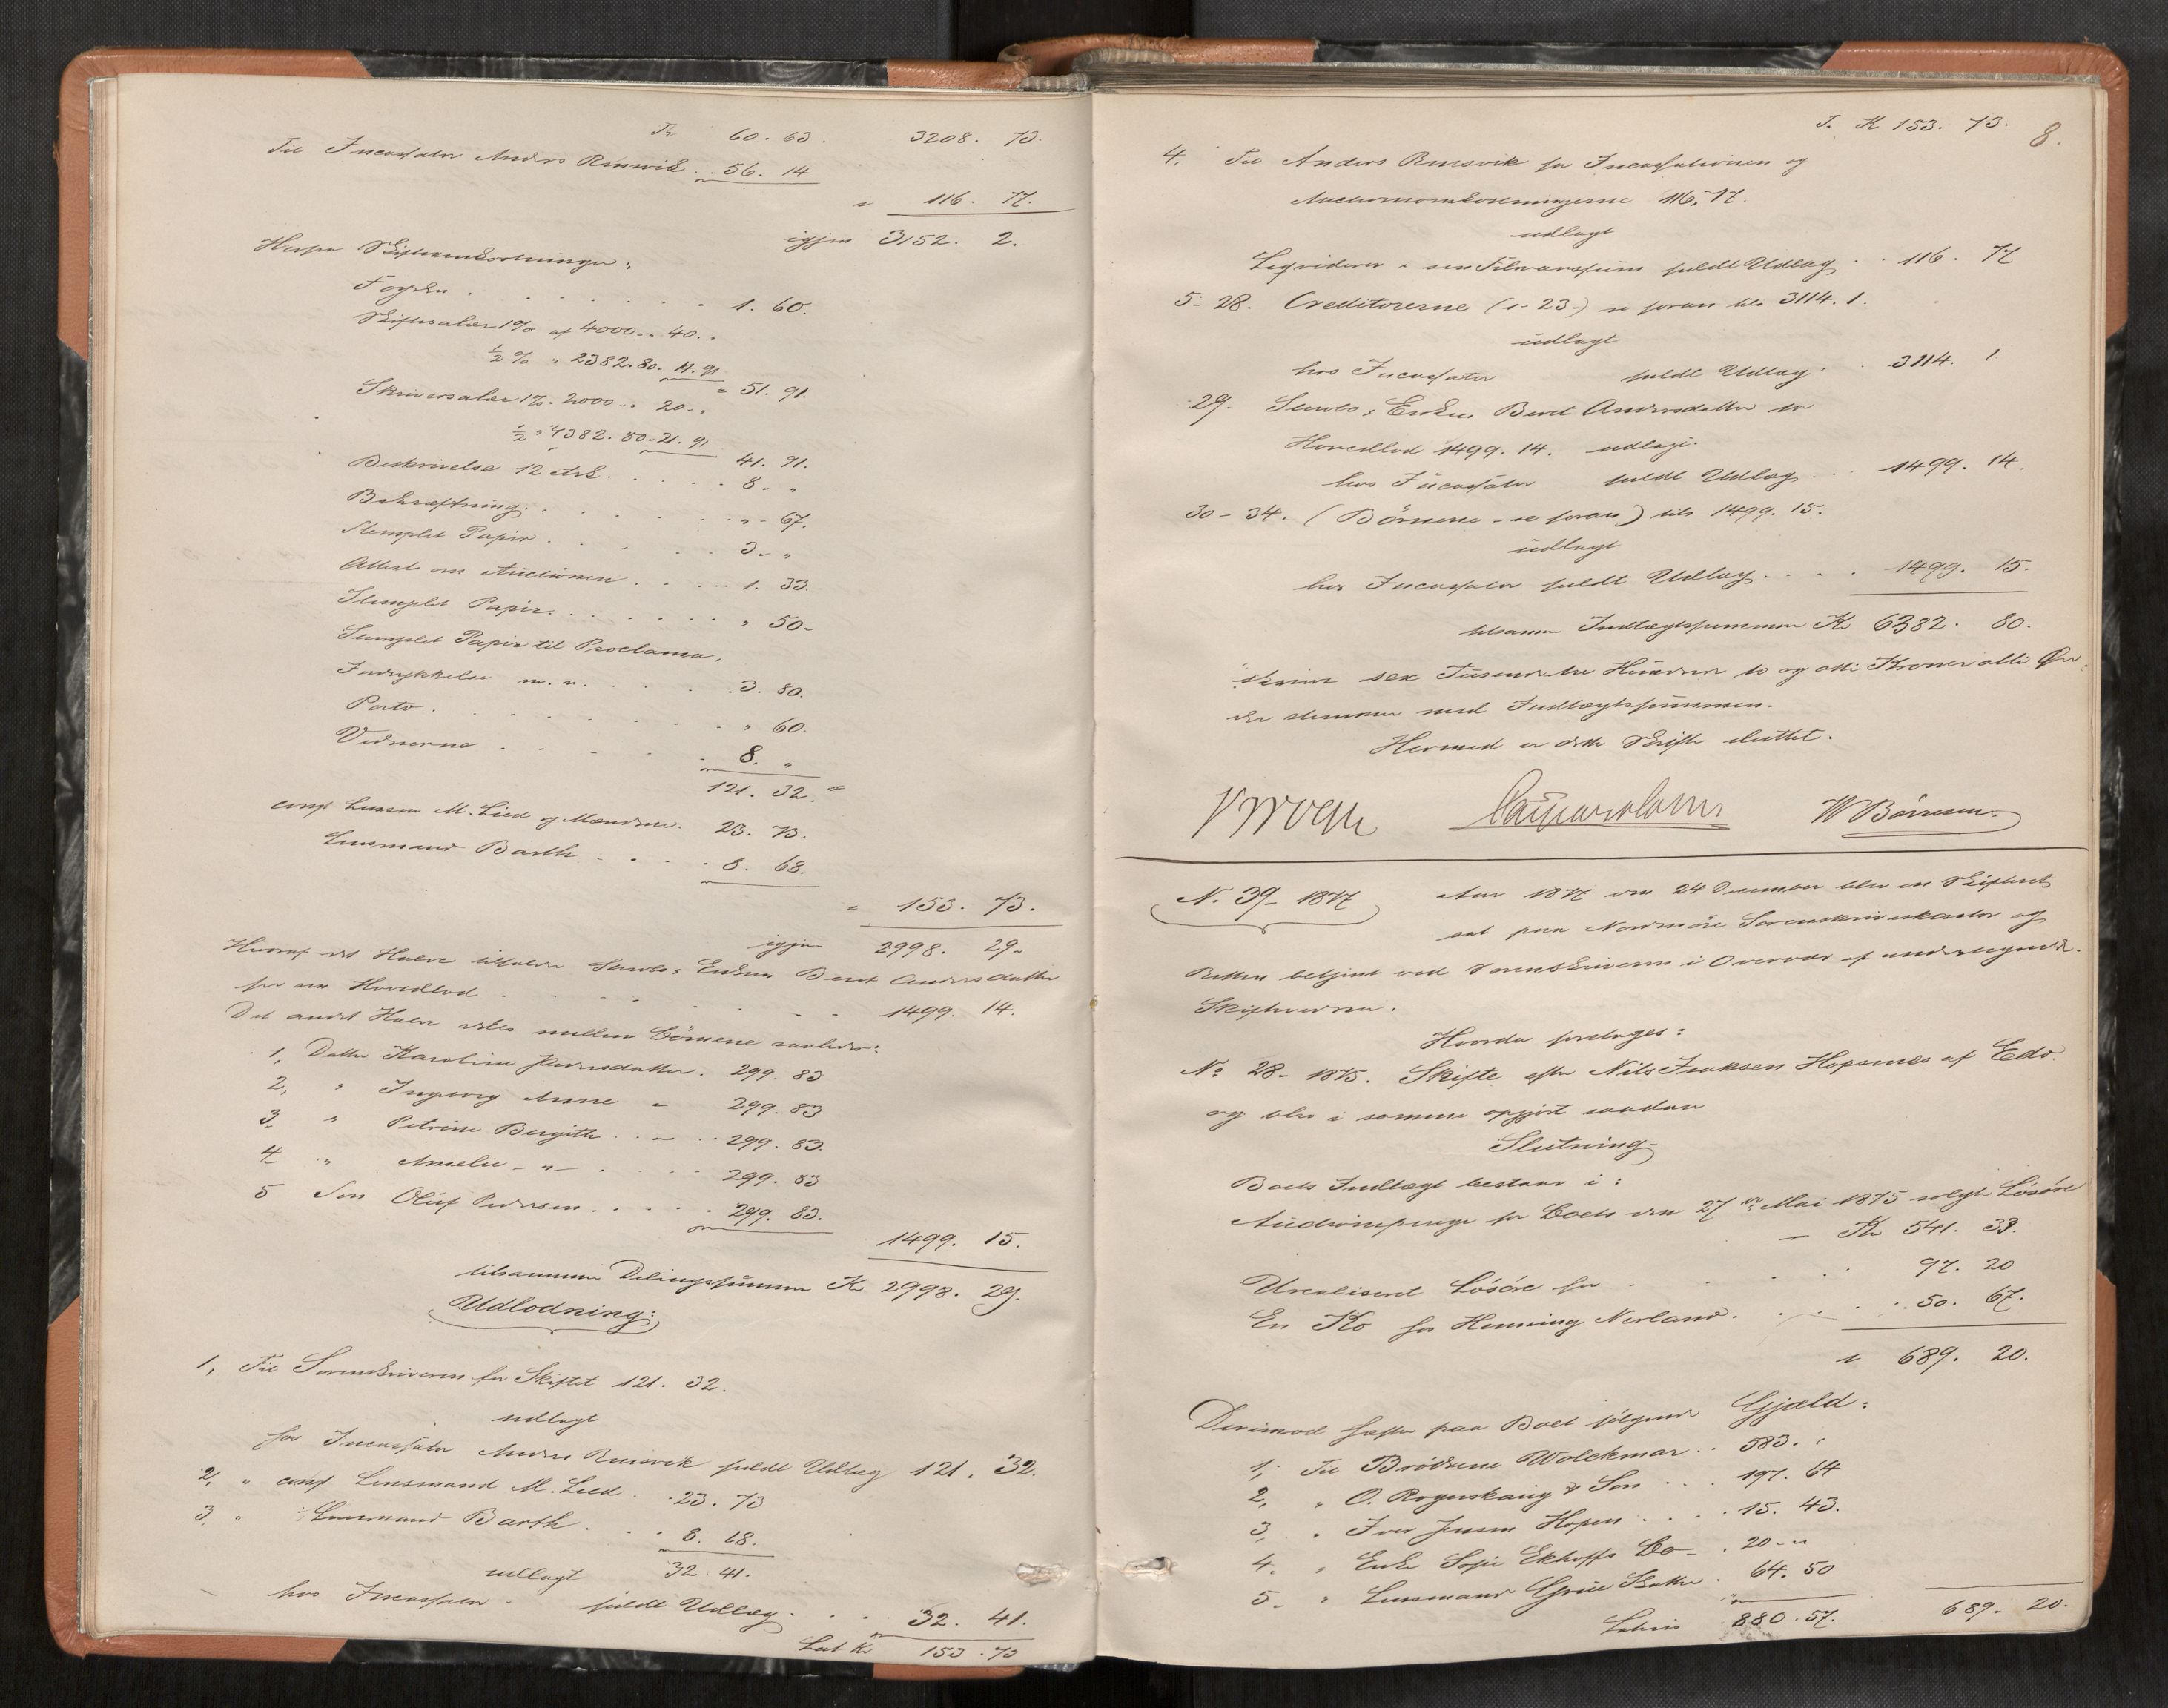 Tr 60. 63. 3208. 73.
Til Incassator Anders Rinsvik . . 56. 14
" 116. 77.
igjen 3152. 2.
Herfra Skifteomkostninger "
Fogden . . . . . . 1. 60.
Skiftesalær 1% af 4000 . " 40. "
½ % " 2382. 80. 11. 91
" 51. 91.
Skriversalær 1%. 2000 - " 20 - "
½ " 4382. 80 - 21. 91
41. 91.
Beskrivelse 12 Ark . . . . . 8. "
Bekræftning . . . . . " - 67.
Stemplet Papir . . . . . 3. "
Attest om Auctionen . . . . 1. 33.
Stemplet Papir . . . . . . " 50 -
Stemplet Papir til Proclama,
Indrykkelse m. v. . . . 3. 80.
Porto . . . . . . . " 60.
Vidnerne . . . . . 8. "
121. 32. "
const Lensm M. Lied og Mændene. 23. 73.
Lensmand Barth . . . . 8. 68.
" 153. 73.
igjen 2998. 29 -
Hvoraf det Halve tilfalder Stervb. Enken Beret Andersdatter
for sin Hovedlod . . . . . . 1499. 14.
Det andet Halve deles mellem Börnene saaledes:
1, Datter Karoline Pedersdatter . 299. 83
2, " Ingeborg Anne " 299. 83
3. " Petrine Bergithe . . - . . 299. 83.
4 " Amelie - " - . . . . 299. 83
5 Sön Oluf Pedersen . . . . . 299. 83.
1499. 15.
tilsammen Delingssummen Kr 2998. 29.
Udlodning:
1, Til Sorenskriveren for Skiftet 121. 32.
udlagt
hos Incassator Anders Rinsvik fuldt Udlæg 121. 32.
2, " const Lensmand M. Lied . . 23. 73
3, " Lensmand Barth . . . 8. 68.
32. 41.
udlagt
hos Incassator - fuldt Udlæg . . . 32. 41.
Lat Kr 153. 73
T. K 153. 73. 8.
4. Til Anders Rinsvik for Incassationen og
Auctionsomkostningerne 116, 77.
udlagt
Liqviderer i sen Tilsvarssum fuldt Udlæg . . 116. 77
5 - 28. Creditorerne (1 - 23 -) se foran tils 3114. 1.
udlagt
hos Incassator fuldt Udlæg . . 3114. 1
29. Stervb. Enken Beret Andersdatter for
Hovedlod 1499. 14. udlagt.
hos Incassator fuldt Udlæg . . 1499. 14.
30 - 34. (Börnene - se foran) tils 1499. 15.
udlagt
hos Incassator fuldt Udlæg . . . . 1499. 15.
tilsammen Indtægtssummen Kr 6382. 80.
skriver sex Tusende tre Hundrede to og otti Kroner otti Öre,
der stemmer med Indtægtssummen.
Hermed er dette Skifte sluttet.
W Börresen.
N. 39 - 1877 Aar 1877 den 24 December blev en Skifteret
sat paa Nordmöre Sorenskriverkontor og
Retten betjent ved Sorenskriveren i Overvær af undertegnede
Skiftevidner.
Hvorda foretages:
No 28 - 1875. Skifte efter Nils Isaksen Hopsnes af Edö.
og blev i samme opgjort saadan
Slutning -
Boets Indtægt bestaar i:
Auctionspenge for Boets den 27de Mai 1875 solgte Lösöre
- Kr 541. 33.
Urealiseret Lösöre for . . . . . 97. 20
En Ko hos Henning Nerland . . . . . 50. 67.
" 689. 20.
Derimod hefter paa Boet fölgende Gjæld:
1, Til Brödrene Wolckmar . . 583. "
2, " O. Rognskaug & Sön . . . 197. 64
3, " Iver Jensen Hopen . . . . 15. 43.
4. " Enke Sofie Ekhoffs Bo - . 20 - "
5 - " Lensmand Grüe Skatter . 64. 50
Lateris 880. 57. 689. 20.